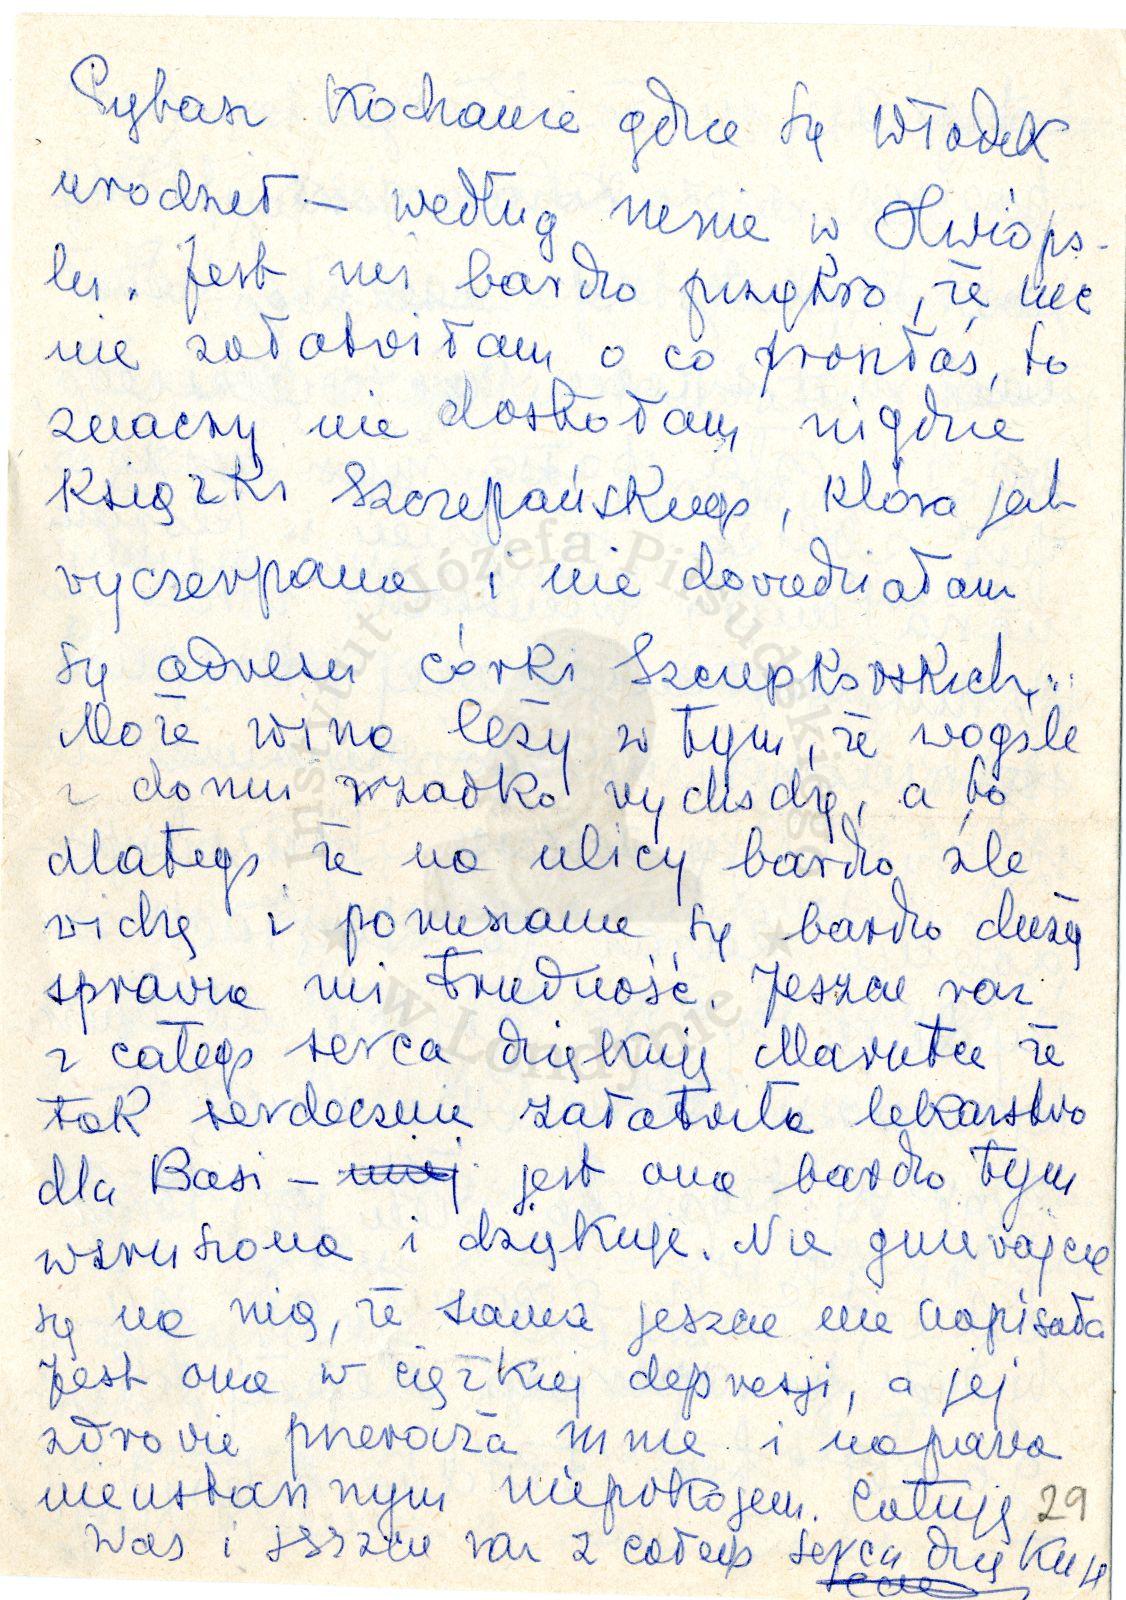 Pytasz Kochanie gdzie się Włodek
urodził – według mnie w
Jest mi bardzo przykro, że nic
nie załatwiłam o co prosiłaś, to
znaczy nie dostałam nigdzie
książki Szczepańskiego, która jest
wyczerpana i nie dowiedziałam
się adresu córki Szczepkowskich.
Może wina leży w tym, że wogóle
z domu rzadko wychodzę, a to
dlatego, że na ulicy bardzo źle
widzę i poruszanie się bardzo dużą
sprawia mi trudność. Jeszcze raz
z całego serca dziękuję że
tak serdecznie załatwiła lekarstwo
dla Basi – jest ona bardzo tym
wzruszona i dziękuje. Nie gniewajcie
się na nią, że sama jeszcze nie napisała
Jest ona w ciężkiej depresji, a jej
zdrowie przeraża mnie i napawa
nieustannym niepokojem. Całuję
Was i jeszcze raz z całego serca dziękuję
29
Instytut Józefa Piłsudskiego
w Londynie